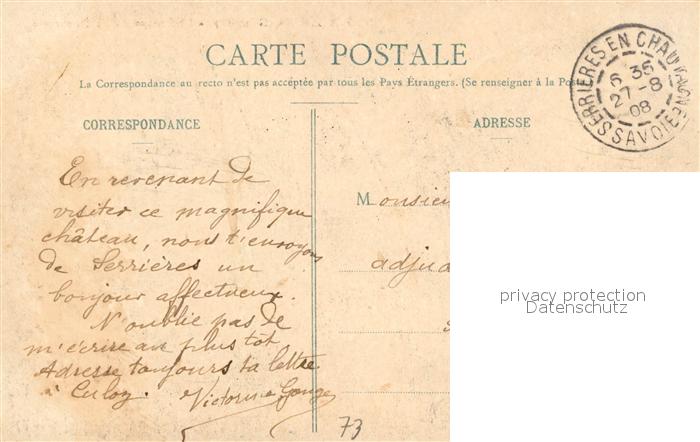 CARTE POSTALE
La Correspondance au recto n'est pas acceptée par tous les Pays Étrangers. (Se renseigner à la Post
CORRESPONDANCE
ADRESSE
SERRIERES EN CHAUTAGNE
6 35
27-8
08
SAVOIE
En revenant de
visiter ce magnifique
château, nous t'envoyons
de Serrières un
bonjour affectueux.
N'oublie pas de
m'écrire au plus tôt
Adresse toujours ta lettre
à Culoz. Victorine
Monsieu
adjud
privacy protection
Datenschutz
73